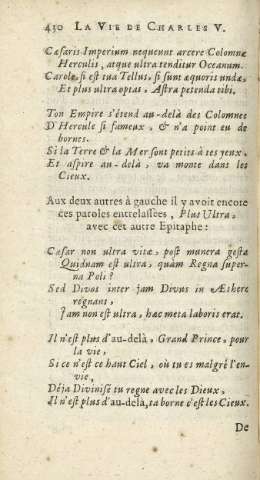 430 LA VIE DE CHARLES V.
Cæsaris Imperium nequeunt arcere Columnæ
Herculis, atque ultra tenditur Oceanum.
Carole, si est tua Tellus, si sunt æquoris undæ,
Et plus ultra optas, Astra petenda tibi.
Ton Empire s'étend au-delà des Colonnes
D'Hercule si fameux, & n'a point eu de
bornes.
Si la Terre & la Mer sont petits à tes yeux,
Et aspire au-delà, va monte dans les
Cieux.
Aux deux autres à gauche il y avoit encore
ces paroles entrelassées, Plus Ultra,
avec cet autre Epitaphe:
Cæsar non ultra vitæ, post munera gesta
Quidnam est ultra, quàm Regna super-
na Poli?
Sed Divos inter jam Divus in Æthere
regnans,
Jam non est ultra, hæc meta laboris erat.
Il n'est plus d'au-delà, Grand Prince, pour
la vie,
Si ce n'est ce haut Ciel, où tu es malgré l'en-
vie,
Déja Divinisé tu regne avec les Dieux,
Il n'est plus d'au-delà, ta borne c'est les Cieux.
De